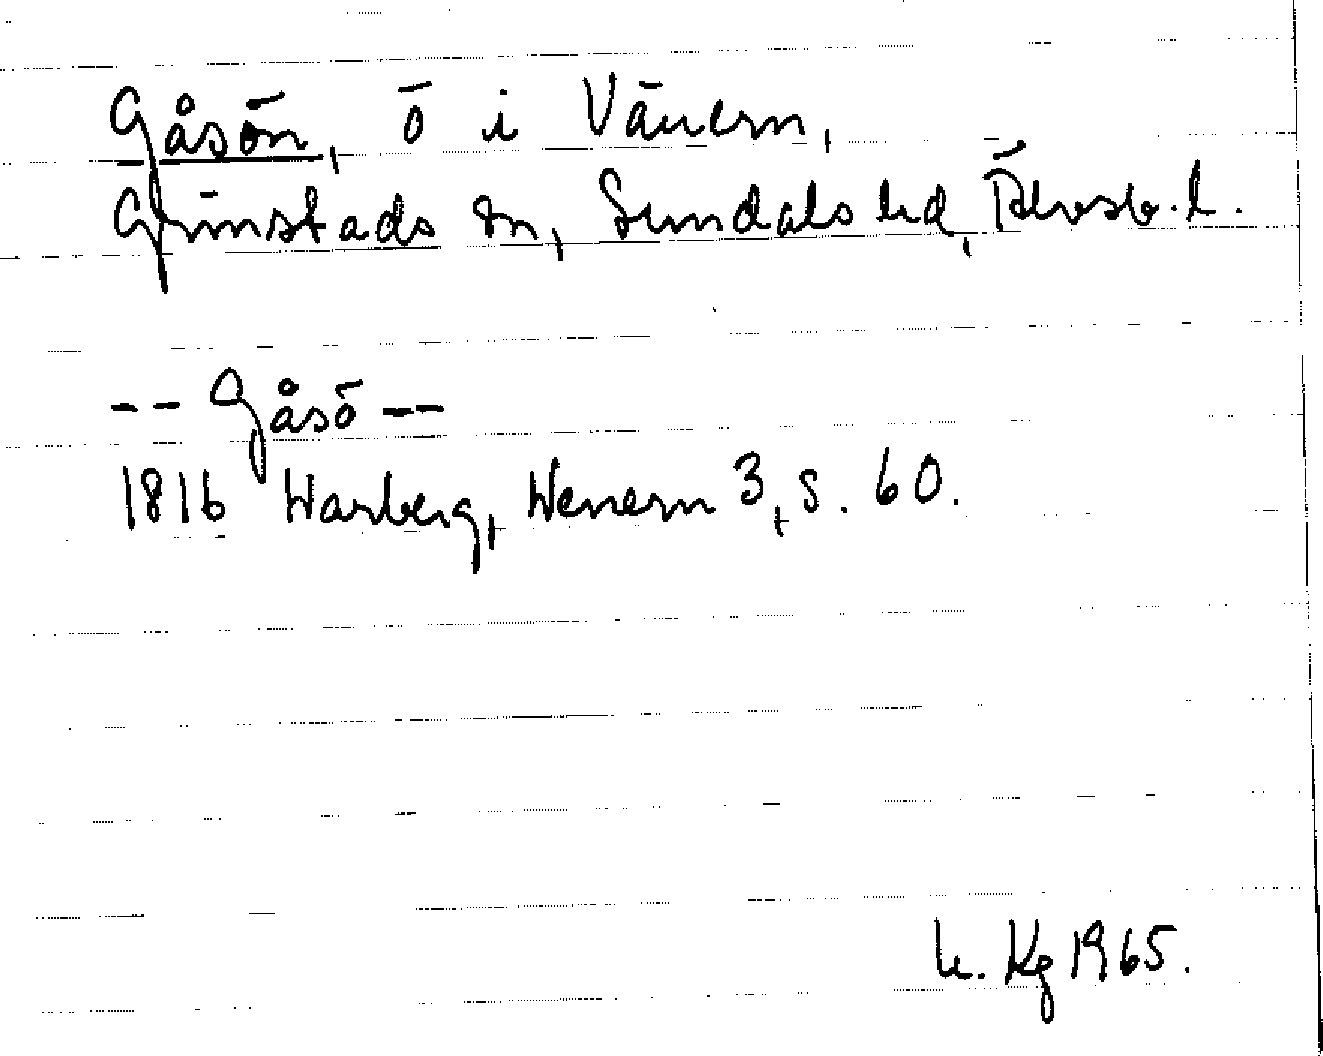 Gåsön, ö i Vänern,
Grinstads sn, Sundals hd, Älvsb. l.
-- Gåsö --
1816 Warberg, Wenern 3, s. 60.
Kg 1965.